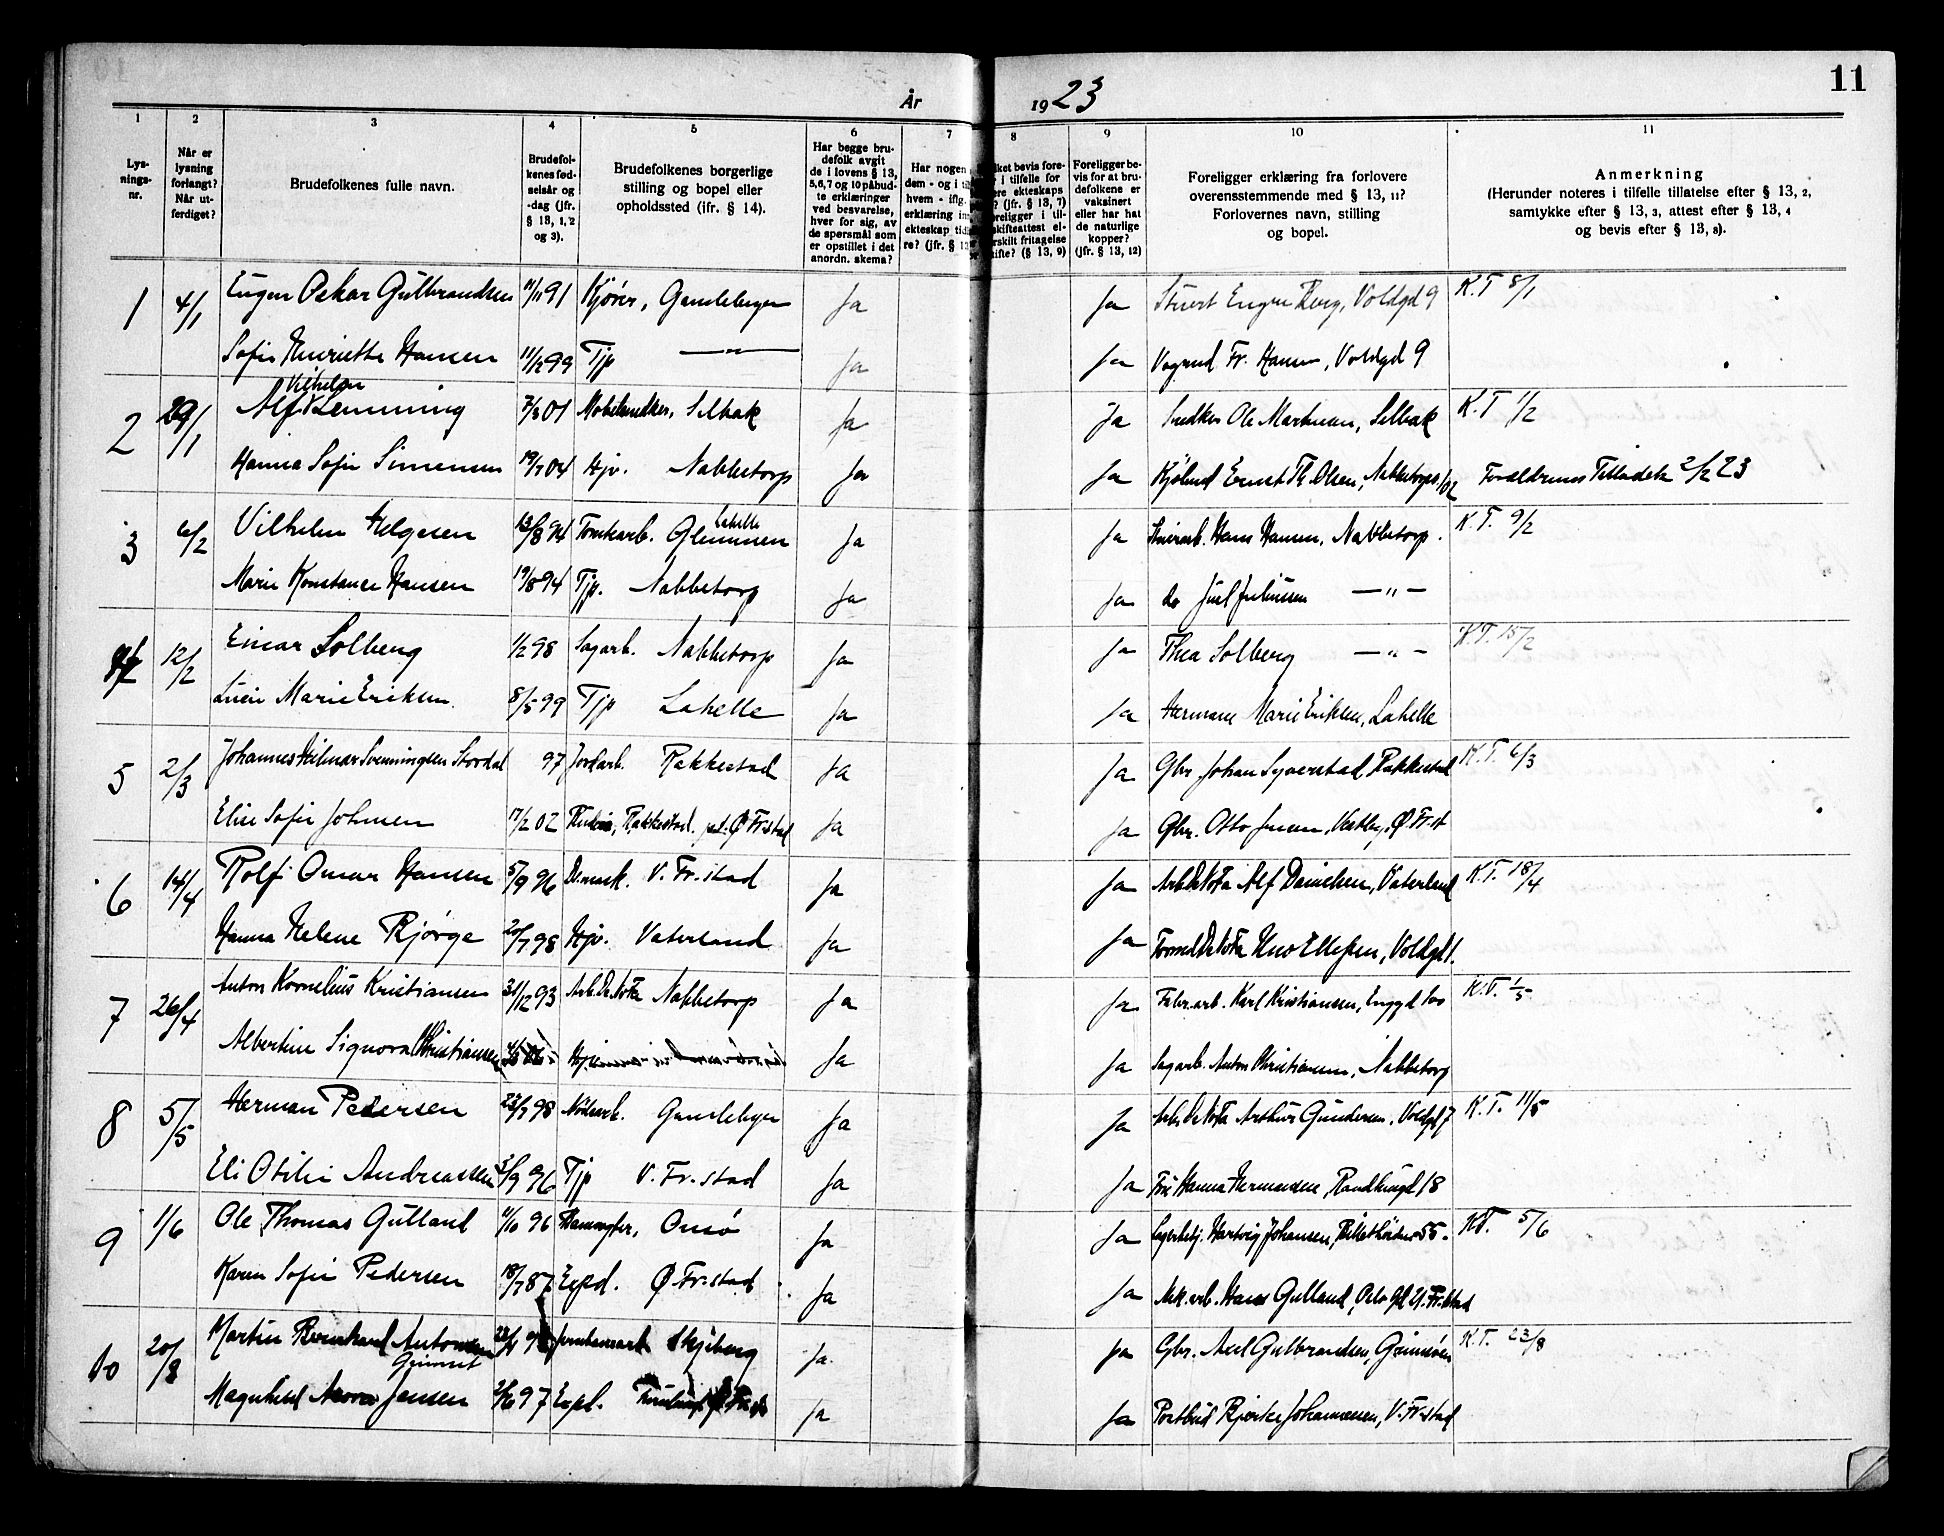 11
År 1923
1 2 3 4 5 6 7 8 9 10 11
Lys-
nings-
nr.
Når er
lysning
forlangt?
Når ut-
ferdiget?
Brudefolkenes fulle navn.
Brudefol-
kenes fød-
selsår og
-dag (jfr.
§ 13, 1, 2
og 3).
Brudefolkenes borgerlige
stilling og bopel eller
opholdssted (ifr. § 14).
Har begge bru-
defolk avgit
de i lovens § 13,
5, 6, 7 og 10 påbud-
te erklæringer
ved besvarelse,
hver for sig, av
de spørsmål som
er opstillet i det
anordn. skema?
Har nogen
dem - og i
hvem - iflg.
erklæring
ekteskap
re? (jfr. § 13
ket bevis fore-
i tilfelle for
ere ekteskaps
? (jfr. § 13, 7)
oreligger i til-
skifteattest el-
rskilt fritagelse
ifte? (§ 13, 9)
Foreligger be-
vis for at bru-
defolkene er
vaksinert
eller har hat
de naturlige
kopper?
(jfr. § 13, 12)
Foreligger erklæring fra forlovere
overensstemmende med § 13, 11?
Forlovernes navn, stilling
og bopel.
Anmerkning
(Herunder noteres i tilfelle tillatelse efter § 13, 2,
samtykke efter § 13, 3, attest efter § 13, 4
og bevis efter § 13, 8).
1 4/1 Eugen Oskar Gulbrandsen 11/11 91 Kjører, Gamlebyen Ja Ja Voldgd 9 K.T 8/1
Sofie Henriette Hansen 11/12 99 Tjp —"— Ja Ja Fr. Hansen, Voldgd 9
2 29/1 Alf Vilhelm Lemming 01 Selbak Ja Ja Snedker Ole Martinsen, Selbak K.T 1/2
Hanna Sofie Simensen 19/7 04 Hjv. Nabbetorp Ja Ja Ernst Th. Olsen, Nabbetorp Forældrenes Tilladelse 2/2 23
3 6/2 Vilhelm Helgesen 13/8 94 Tomtearb. Glemmen Labelle Ja Ja Hans Hansen, Nabbetorp. K.T. 9/2
Marie Konstance Hansen 19/8 94 Tjp. Nabbetorp Ja Ja do Juel Juliussen —"—
4 12/2 Einar Solberg 1/2 98 Sagarb. Nabbetorp Ja Ja Thea Solberg —"— K.T. 15/2
Marie Eriksen 8/5 99 Tjp Lahelle Ja Ja Hermane Marie Eriksen, Lahelle
5 2/3 Johannes Hilmar Svenningsen Stordal 97 Jordarb. Rakkestad Ja Ja Gbr. Johan Syverstad Rakkestad K.T. 6/3
Elise Sofie Johnsen 17/2 02 Rakkestad. Ø. Fr.stad Ja Ja Gbr. Otto Jensen, Ø. Fr.st
6 14/4 Rolf Omar Hansen 5/9 96 V. Fr.stad Ja Ja Alf Danielsen, Vaterland K.T. 18/4
Hanna Helene Bjørge 20/7 98 Hjv. Vaterland Ja Ja Ellefsen, Voldgd 1.
7 26/4 Anton Kornelius Kristiansen 31/12 93 Arb. Nabbetorp Ja Ja Fabr.arb. Karl Kristiansen, K.T. 1/5
Albertine Signora Christiansen Ja Ja Sagarb. Anton Christiansen, Nabbetorp
8 5/5 Herman Pedersen 23/7 98 Gamlebyen Ja Ja Arthur Gundersen, Voldgd 7 K.T. 11/5
Eli Otilie Andreassen 96 Tjp V. Fr.stad Ja Ja Fru Hanna Hermansen, 18
9 1/6 Ole Thomas Gulland 96 Onsø Ja Ja Hartvig Johansen, 55. K.T. 5/6
Karen Sofie Pedersen 18/7 87 Expd. Ø Fr.stad Ja Ja Mek.arb. Hans Gulland, Oslo gd Fr.stad
10 20/8 Martin Bernhard Antonsen Skjeberg Ja. Ja Gbr. Axel Gulbrandsen, K.T. 23/8
Magnhild Jensen 97 Expd. Ja Ja Postbud Bjerke Johannessen, V. Fr.stad